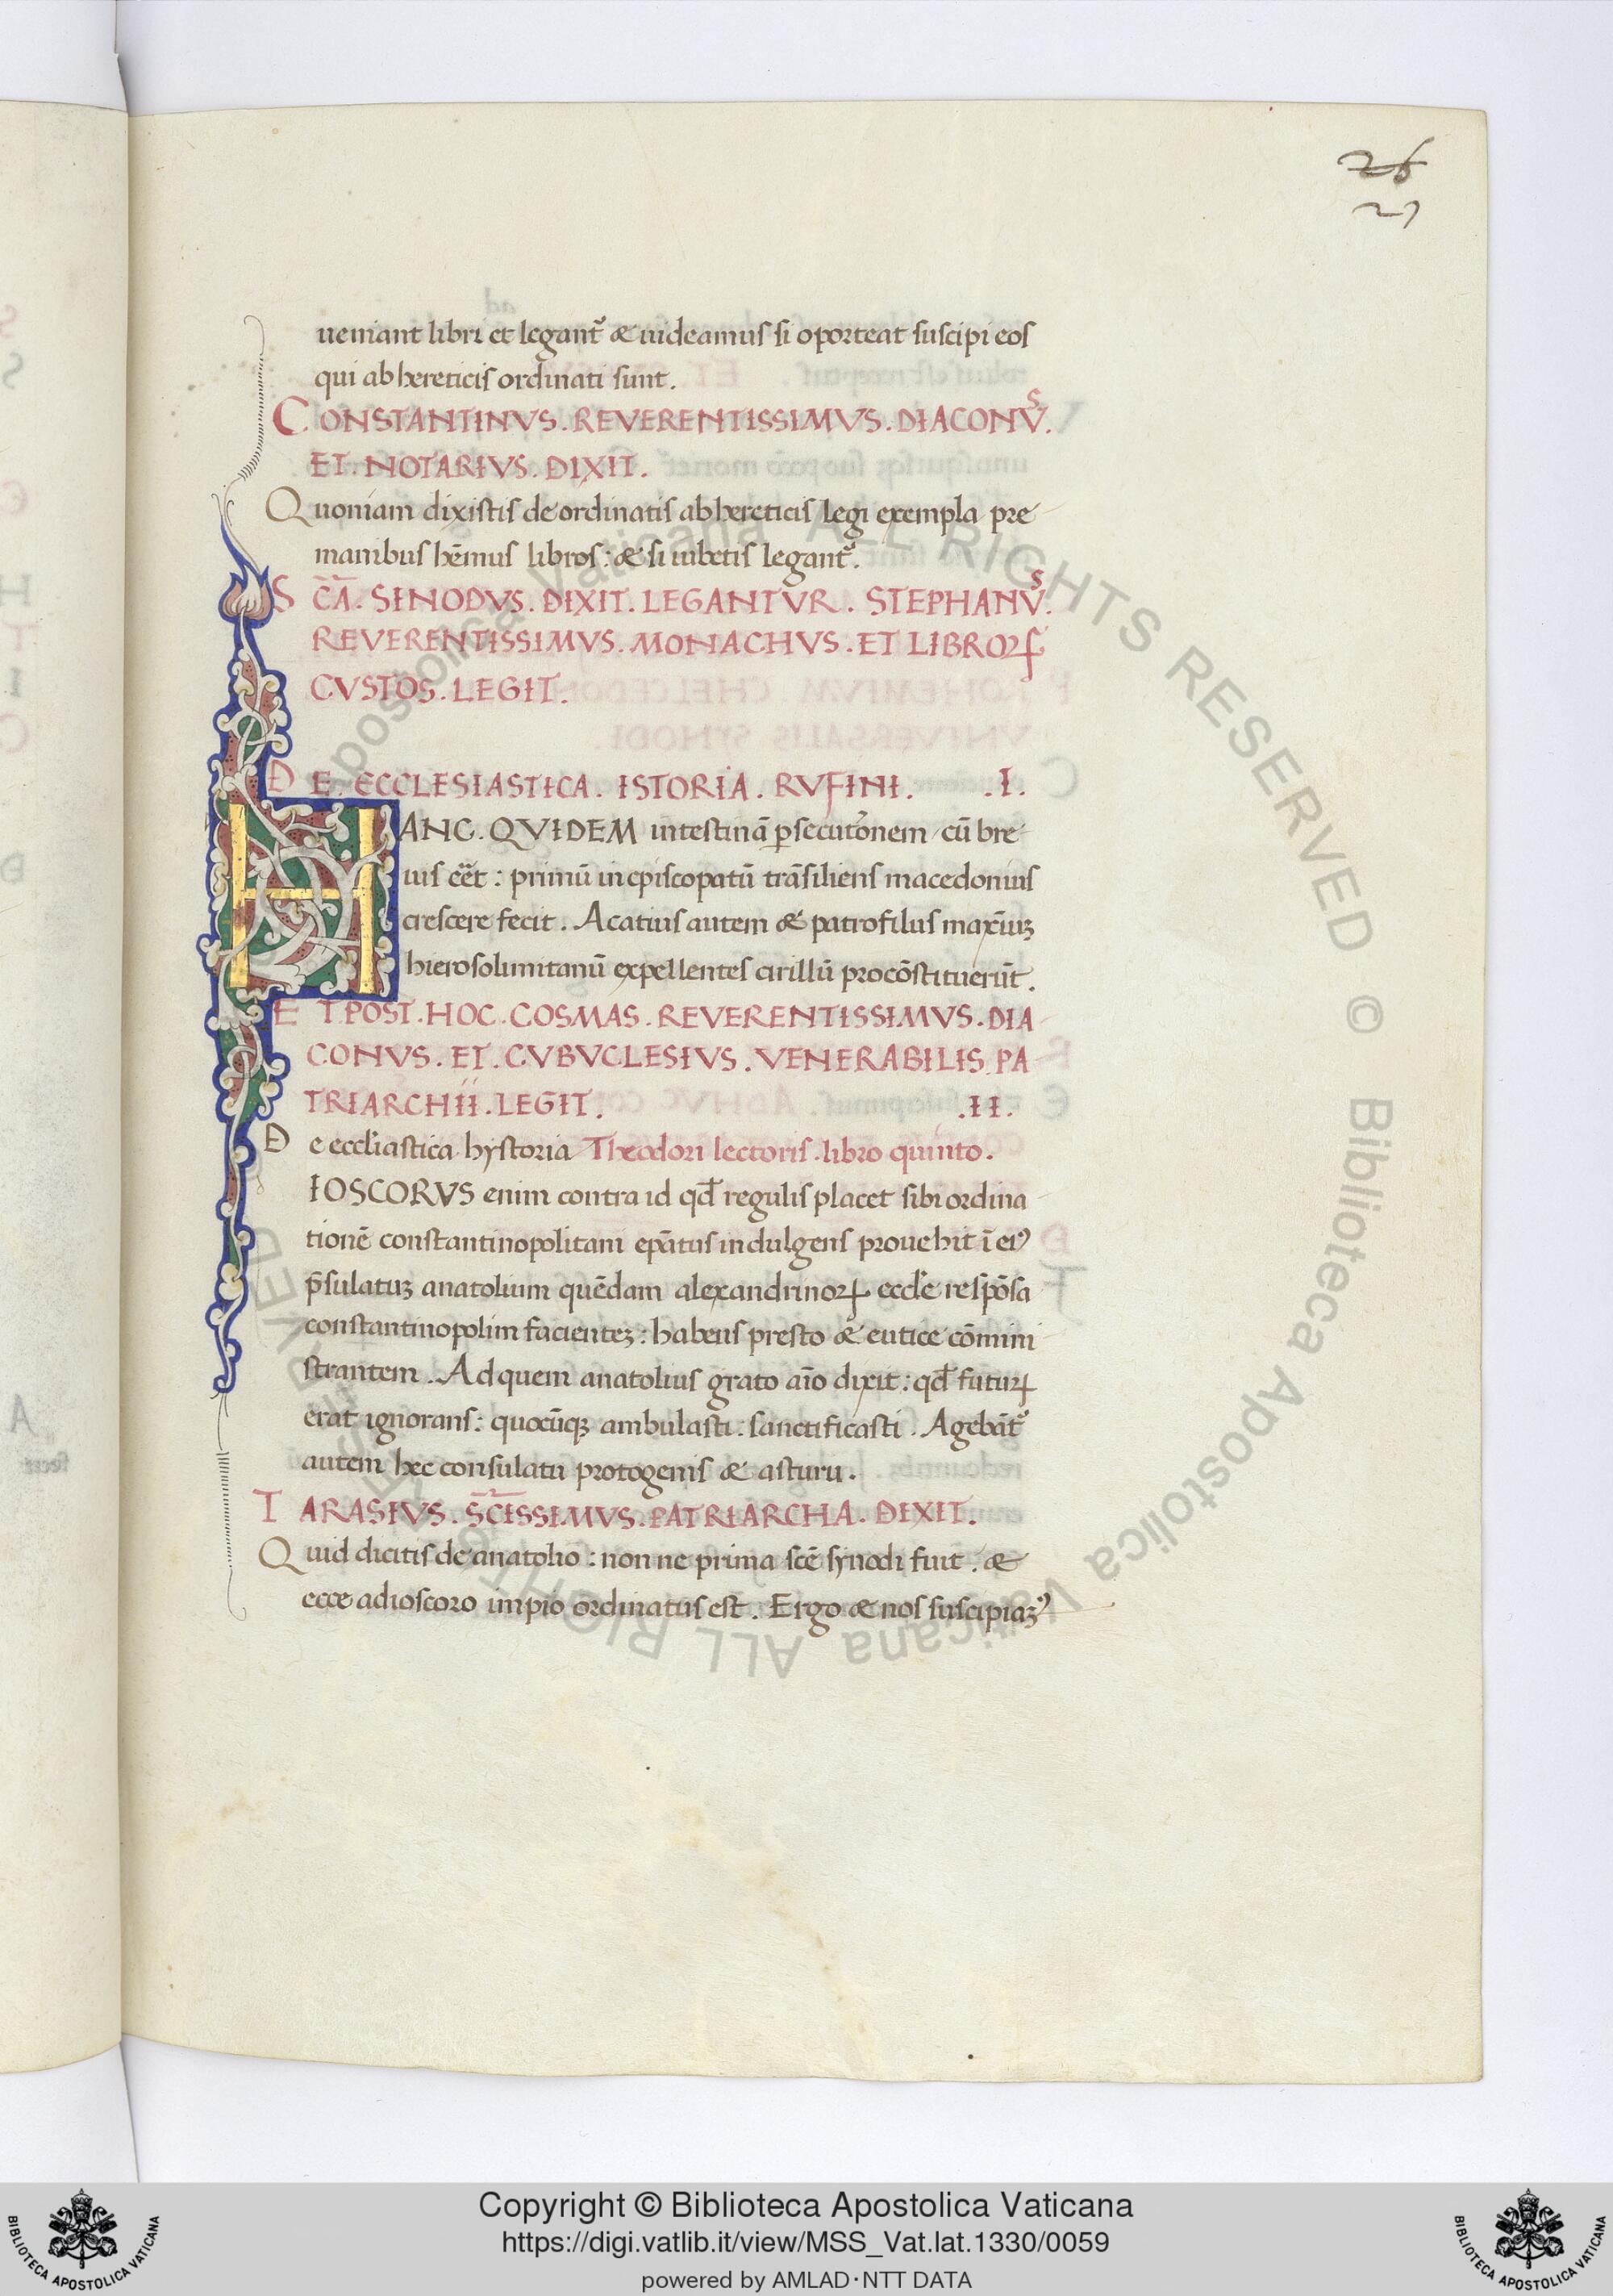 26
27
ueniant libri et legant᷑ & uideamus si oporteat suscipi eos
qui ab hereticis ordinati sunt.
CONSTANTINVS. REVERENTISSIMVS. DIACONVS.
ET. NOTARIVS. DIXIT.
Quoniam dixistis de ordinatis ab hereticis legi exempla pre
manibus hēmus libros: & si iubetis legant᷑.
SC̄Ā. SINODVS. DIXIT. LEGANTVR. STEPHANVS.
REVERENTISSIMVS. MONACHVS. ET LIBROꝝ
CVSTOS. LEGIT.
DE. ECCLESIASTICA. ISTORIA. RVFINI. .I.
HANC. QVIDEM intestinā ꝑsecutōnem cū bre
uis eēt: primū in episcopatū trāsiliens macedonius
crescere fecit. Acatius autem & patrofilus maxīuꝫ
hierosolimitanū expellentes cirillū procōstituerūt.
ET. POST. HOC. COSMAS. REVERENTISSIMVS. DIA
CONVS. ET. CVBVCLESIVS. VENERABILIS. PA
TRIARCHII. LEGIT. .II.
De eccl̄iastica hystoria Theodori lectoris. libro quinto.
IOSCORVS enim contra id qd̄ regulis placet sibi ordina
tionē constantinopolitani ep̄atus indulgens prouehit ī eiꝰ
p̄sulatuꝫ anatolium quēdam alexandrinoꝝ eccl̄e respōsa
constantinopolim facienteꝫ: habens presto & eutice cōmini
strantem. Ad quem anatolius grato aīo dixit: qd̄ futuꝝ
erat ignorans: quocūqꝫ ambulasti: sanctificasti. Agebāt᷑
autem hec consulatu protogenis & asturii.
TARASIVS. SC̄ISSIMVS. PATRIARCHA. DIXIT.
Quid dicitis de anatolio: non ne prima scē synodi fuit. &
ecce a dioscoro impio ordinatus est. Ergo & nos suscipiaꝫꝰ
Copyright © Biblioteca Apostolica Vaticana
https://digi.vatlib.it/view/MSS_Vat.lat.1330/0059
powered by AMLAD·NTT DATA
BIBLIOTECA APOSTOLICA VATICANA
BIBLIOTECA APOSTOLICA VATICANA